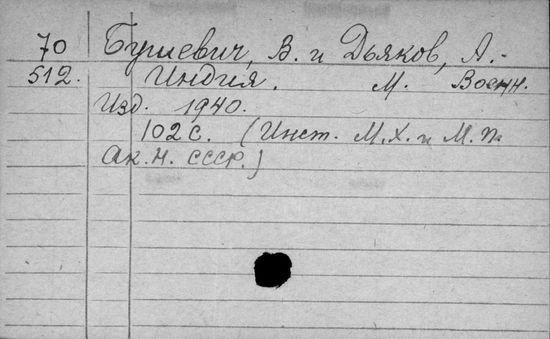 70 Бушевич, В. и Дьяков, А.-
512. Индия. М. Воен.
Изд. 1940.
102 с. (Инст. М.Х. и М.П.
Ак. Н. СССР.)